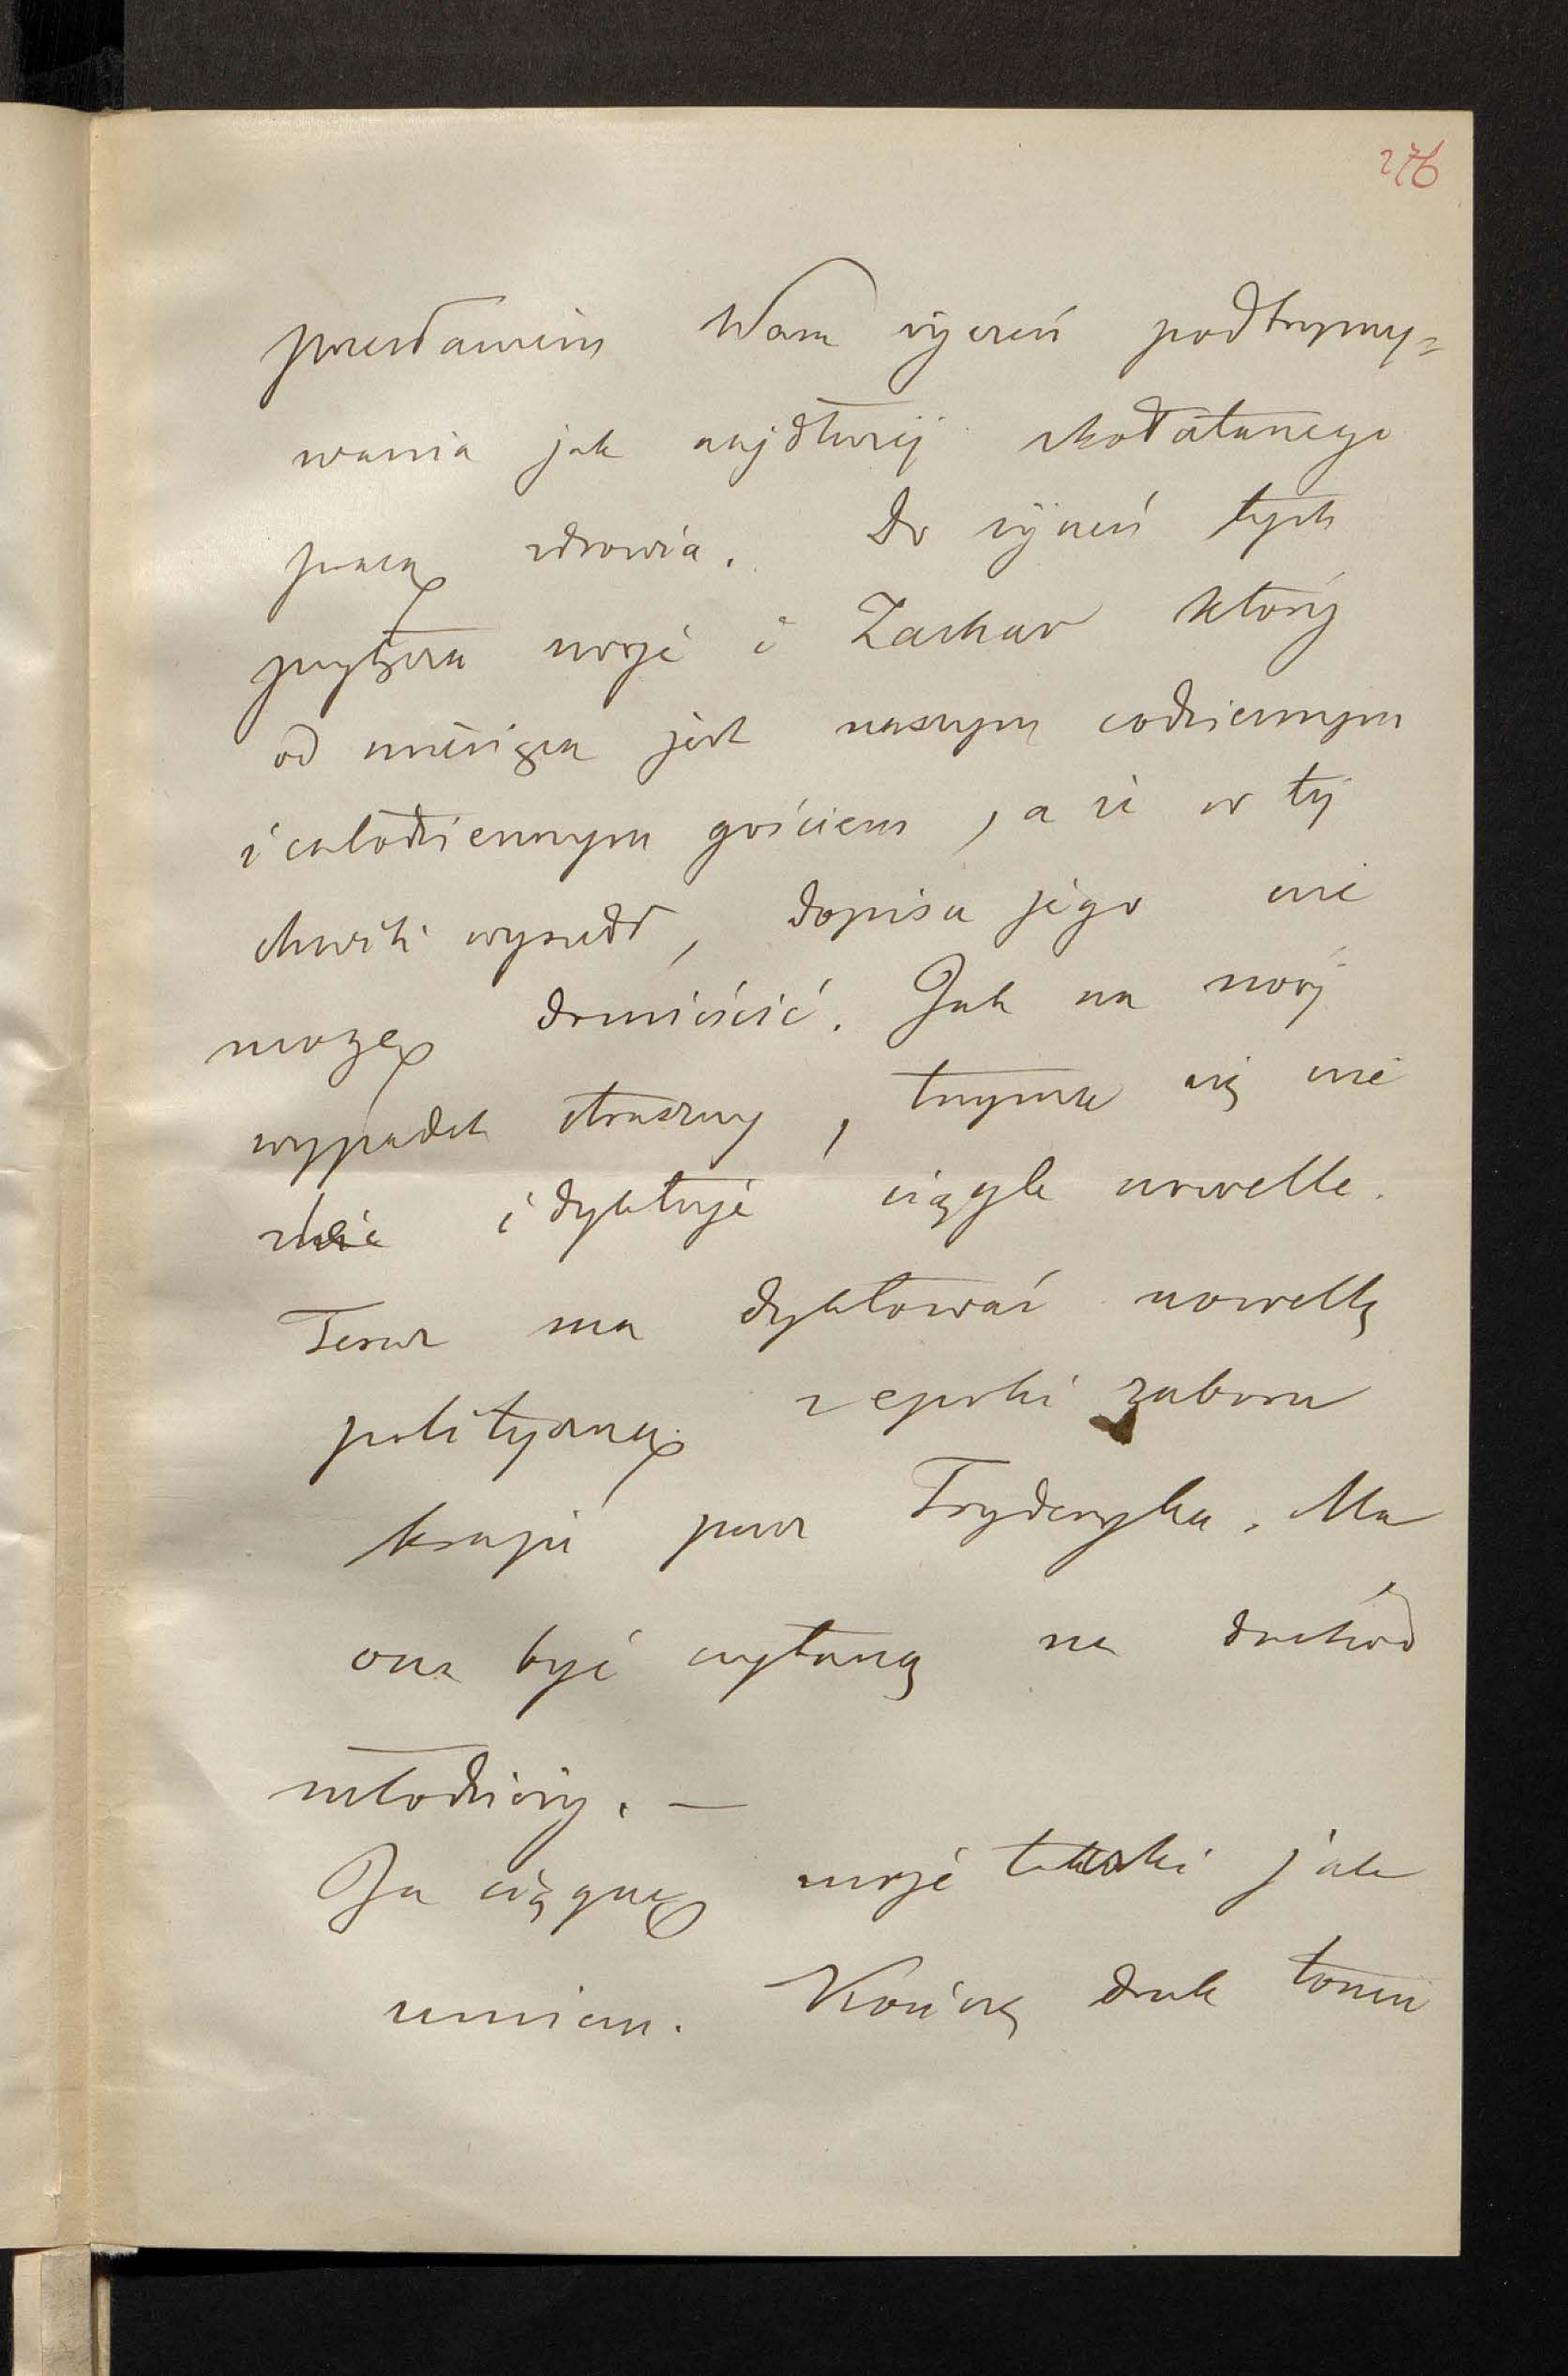 276
przesłaniem Wam życzeń podtrzymy=
wania jak najdłużej skołatanego
pracą zdrowia. Do życzeń tych
przyłącza swoje i Zachar który
od miesiąca jest naszym codziennym
i całodziennym gościem, a że w tej
chwili wyszedł, dopisu jego nie
mogę domieścić. Jak na swój
wypadek straszny, trzyma się nie
źle i dyktuje ciągle nowelle.
Teraz ma dyktować nowellę
polityczną z epoki zaboru
kraju przez Fryderyka. Ma
ona być czytaną na dochód
młodzieży. —
Ja ciągnę moje taczki jak
umiem. Kończę druk tomu